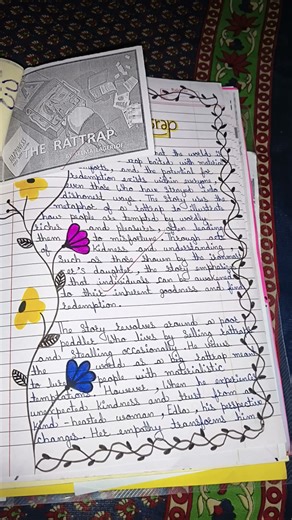 THE RATTRAP
rap
and the world, is
rap baited with materia
and the potential for
redemption exists within everyone
even those who have strayed into
dishonest ways. The story uses the
metaphor of a rattrap to illustrate
how people are tempted by worldly
riches and pleasures, often leading
them to misfortune. Through acts
of kindness and understanding
Such as those shown by the ironmast
er's daughter, the story emphasi
that individuals can be awakened
to their inherent goodness and find
redemption.
The Story revolves around a poor
peddler who lives by Selling rattraps
and Stealling occasionally. He views
the world as a big rattrap meant
to lure people with materialistic
temptations. However, When he experience
unexpected kindness and trust from a
kind-hearted woman, Edla, his perspective
changes. Her empathy transforms him